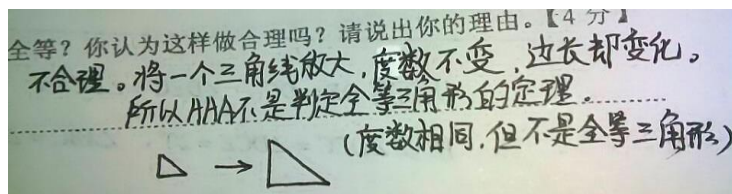 全等？你认为这样做合理吗？请说出你的理由。【4 分】
不合理。将一个三角线放大，度数不变，边长却变化。
所以AAA不是判定全等三角形的定理。
（度数相同，但不是全等三角形）